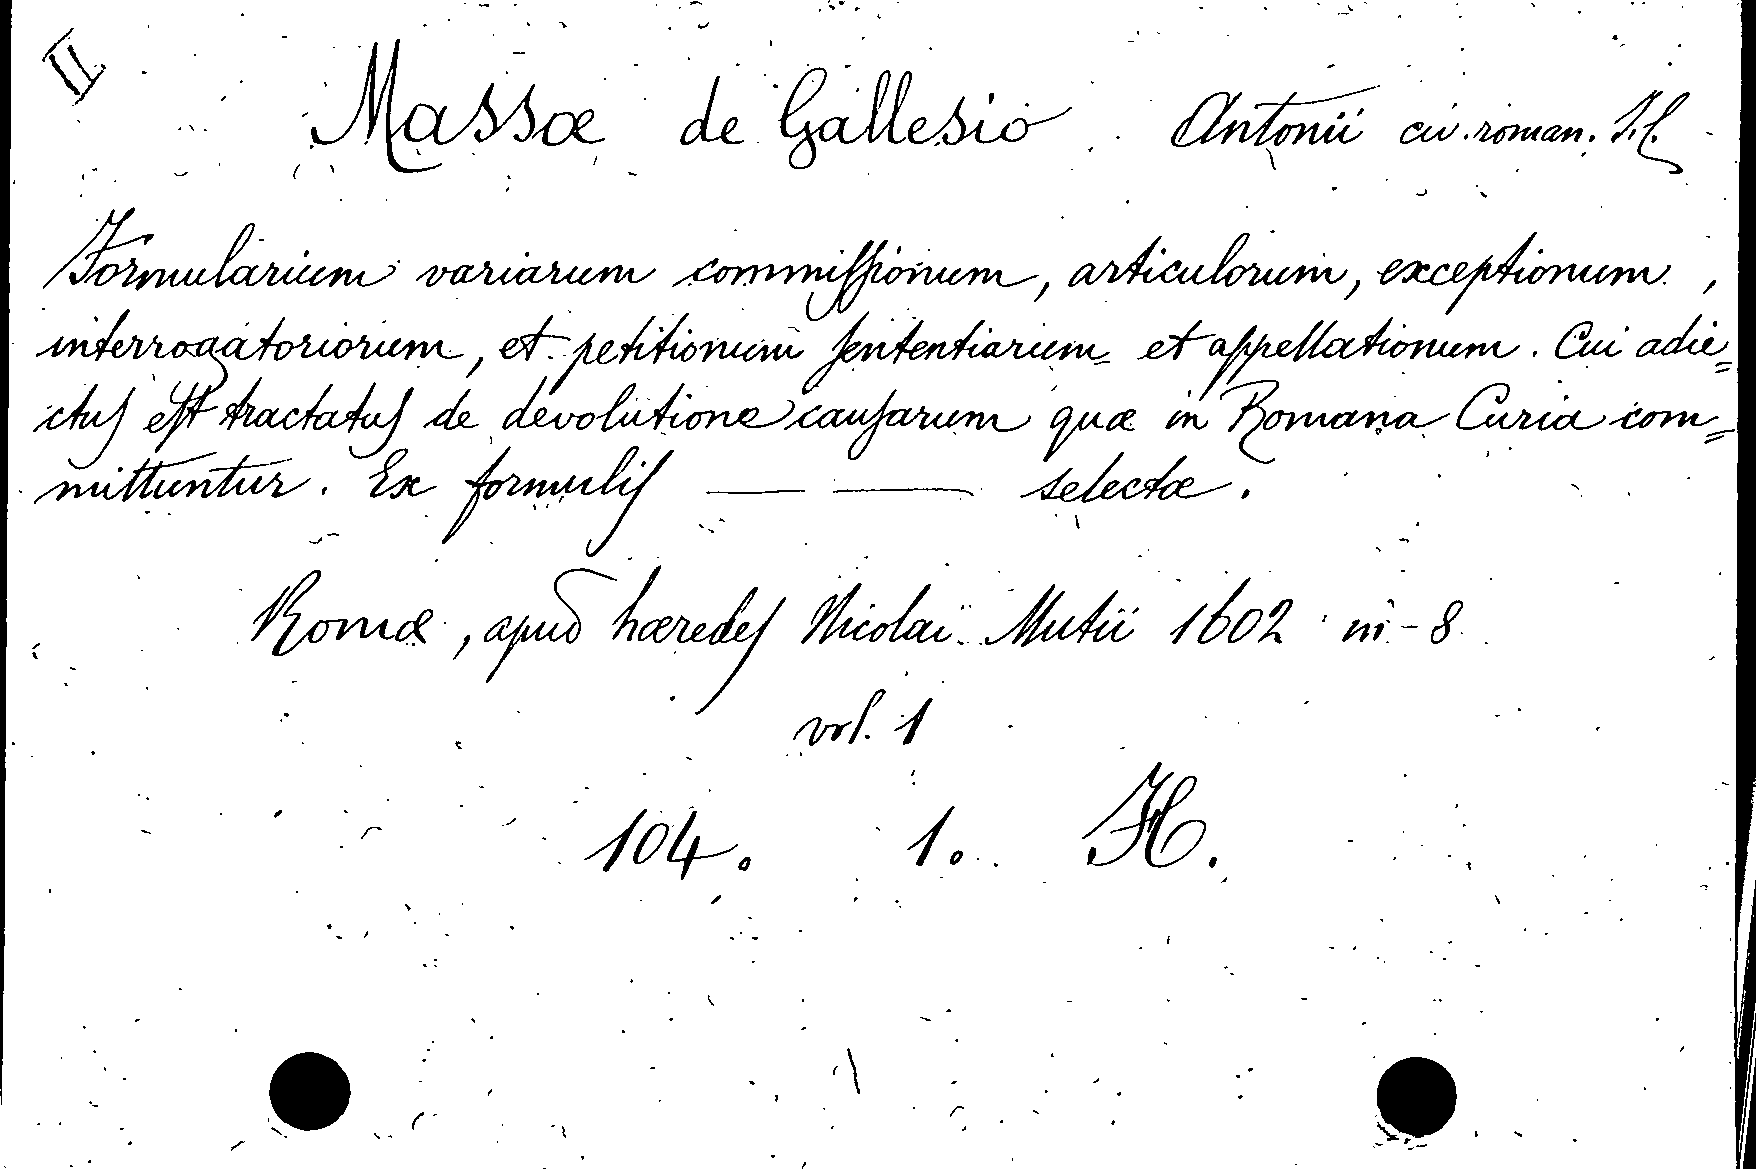 II
Massæ de Gallesio Antonii civ. roman. J.C.
Formularium variarum commiſſionum, articulorum, exceptionum,
interrogatoriorum, et petitionum ſententiarum et appellationum. Cui adie=
ctuſ eſt tractatuſ de devolutione cauſarum quæ in Romana Curia com=
mittuntur. Ex formuliſ — — selectæ.
Romæ, apud hæredeſ Nicolai Mutii 1602 in-8
vol. 1
104. 1. H.